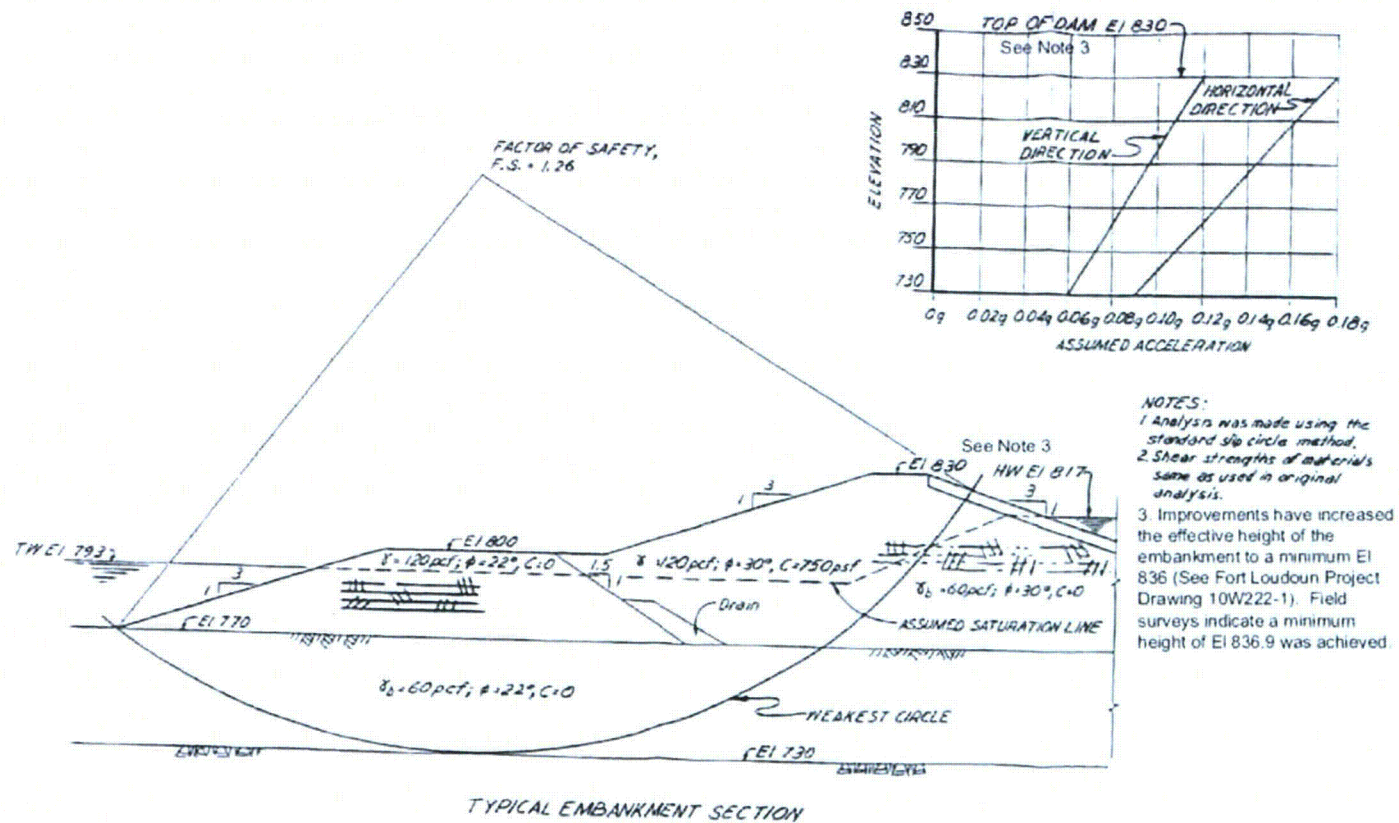 850
TOP OF DAM El 830
See Note 3
830
HORIZONTAL
DIRECTION
810
VERTICAL
DIRECTION
790
ELEVATION
770
750
730
0g 0.02g 0.04g 0.06g 0.08g 0.10g 0.12g 0.14g 0.16g 0.18g
ASSUMED ACCELERATION
FACTOR OF SAFETY,
F.S. = 1.26
NOTES:
1 Analysis was made using the
standard slip circle method.
2. Shear strengths of materials
same as used in original
analysis.
3. Improvements have increased
the effective height of the
embankment to a minimum El
836 (See Fort Loudoun Project
Drawing 10W222-1). Field
surveys indicate a minimum
height of El 836.9 was achieved.
See Note 3
El 830
HW El 817
3
1
3
1
TW El 793
El 800
γ = 120 pcf; φ = 22°, C=0
γ = 120 pcf; φ = 30°, C=750 psf
1.5
1
3
1
γb = 60 pcf; φ = 30°, C=0
Drain
ASSUMED SATURATION LINE
El 770
γb = 60 pcf; φ = 22°, C=0
WEAKEST CIRCLE
El 730
TYPICAL EMBANKMENT SECTION